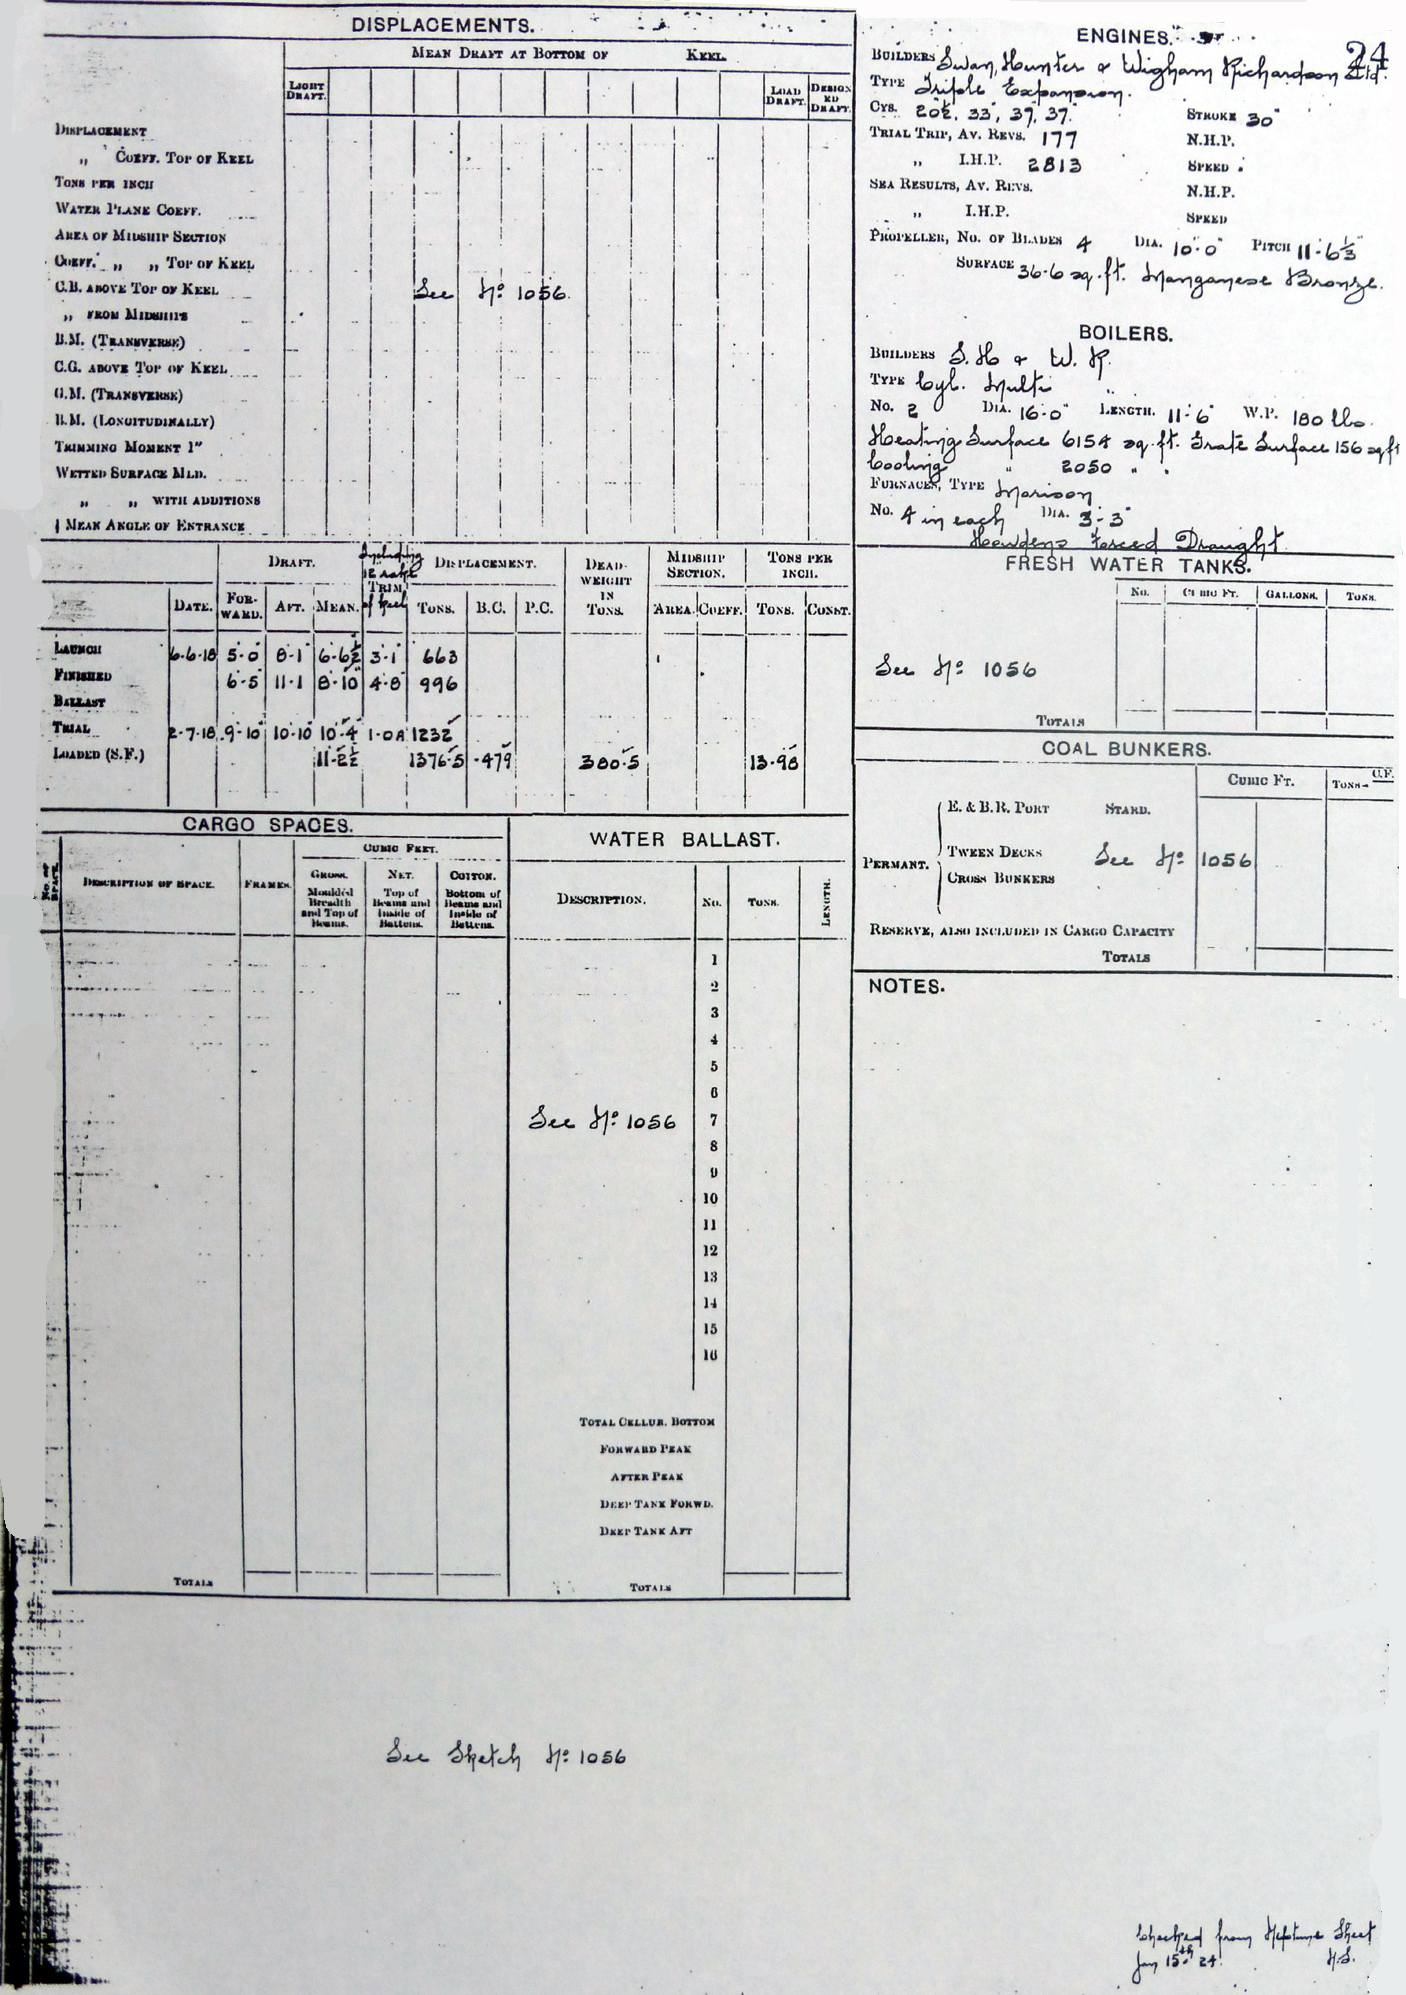 24
DISPLACEMENTS.
MEAN DRAFT AT BOTTOM OF KEEL.
LIGHT DRAFT. LOAD DRAFT. DESIGNED DRAFT.
DISPLACEMENT
„ COEFF. TOP OF KEEL
TONS PER INCH
WATER PLANE COEFF.
AREA OF MIDSHIP SECTION
COEFF. „ „ TOP OF KEEL
C.B. ABOVE TOP OF KEEL See No. 1056.
„ FROM MIDSHIPS
B.M. (TRANSVERSE)
C.G. ABOVE TOP OF KEEL
G.M. (TRANSVERSE)
B.M. (LONGITUDINALLY)
TRIMMING MOMENT 1"
WETTED SURFACE MLD.
„ „ WITH ADDITIONS
½ MEAN ANGLE OF ENTRANCE
DRAFT. Including 12" rake of keel TRIM DISPLACEMENT. DEAD-WEIGHT IN TONS. MIDSHIP SECTION. TONS PER INCH.
DATE. FOR-WARD. AFT. MEAN. TONS. B.C. P.C. AREA. COEFF. TONS. CONST.
LAUNCH 6-6-18 5-0" 8-1" 6-6½ 3-1" 663
FINISHED 6-5" 11-1 8-10" 4-8" 996
BALLAST
TRIAL 2-7-18 9-10" 10-10" 10-4" 1-0A 1232
LOADED (S.F.) 11-2½ 1376.5 .479 380.5 13.98
CARGO SPACES.
CUBIC FEET.
NO. OF SPACE. DESCRIPTION OF SPACE. FRAMES. GROSS. Moulded Breadth and Top of Beams. NET. Top of Beams and Inside of Battens. COTTON. Bottom of Beams and Inside of Battens.
TOTALS
WATER BALLAST.
DESCRIPTION. NO. TONS. LENGTH.
1
2
3
4
5
6
See No. 1056 7
8
9
10
11
12
13
14
15
16
TOTAL CELLUR. BOTTOM
FORWARD PEAK
AFTER PEAK
DEEP TANK FORWD.
DEEP TANK AFT
TOTALS
ENGINES.
BUILDERS Swan, Hunter & Wigham Richardson Ltd.
TYPE Triple Expansion.
CYS. 20½", 33", 37", 37" STROKE 30"
TRIAL TRIP, AV. REVS. 177 N.H.P.
„ I.H.P. 2813 SPEED
SEA RESULTS, AV. REVS. N.H.P.
„ I.H.P. SPEED
PROPELLER, NO. OF BLADES 4 DIA. 10'-0" PITCH 11'-6⅓"
SURFACE 36.6 sq. ft. Manganese Bronze.
BOILERS.
BUILDERS S. H & W. R.
TYPE Cyl. Multi
NO. 2 DIA. 16'-0" LENGTH. 11'-6" W.P. 180 lbs.
Heating Surface 6154 sq. ft. Grate Surface 156 sq ft
Cooling " 2050 " "
FURNACES, TYPE Morison
NO. 4 in each DIA. 3'-3"
Howdens Forced Draught
FRESH WATER TANKS.
NO. CUBIC FT. GALLONS. TONS.
See No. 1056
TOTALS
COAL BUNKERS.
CUBIC FT. TONS- C.F.
PERMANT. E. & B.R. PORT STARD.
TWEEN DECKS See No. 1056
CROSS BUNKERS
RESERVE, ALSO INCLUDED IN CARGO CAPACITY
TOTALS
NOTES.
See Sketch No. 1056
Checked from Neptune Sheet
Jan 15th 24. H.S.